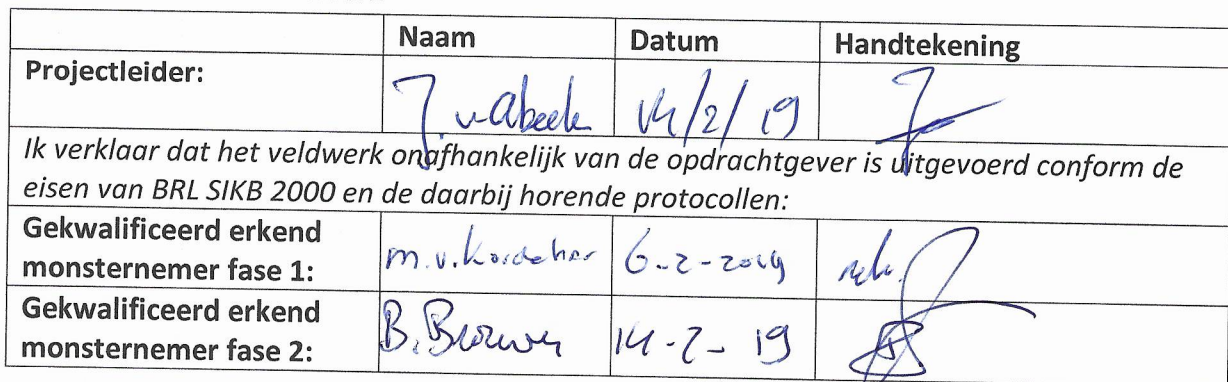 Naam Datum Handtekening
Projectleider: J. v Abeele 14/2/19
Ik verklaar dat het veldwerk onafhankelijk van de opdrachtgever is uitgevoerd conform de
eisen van BRL SIKB 2000 en de daarbij horende protocollen:
Gekwalificeerd erkend
monsternemer fase 1: m.v. 6-2-2019
Gekwalificeerd erkend
monsternemer fase 2: B. Brouwer 14-2-19